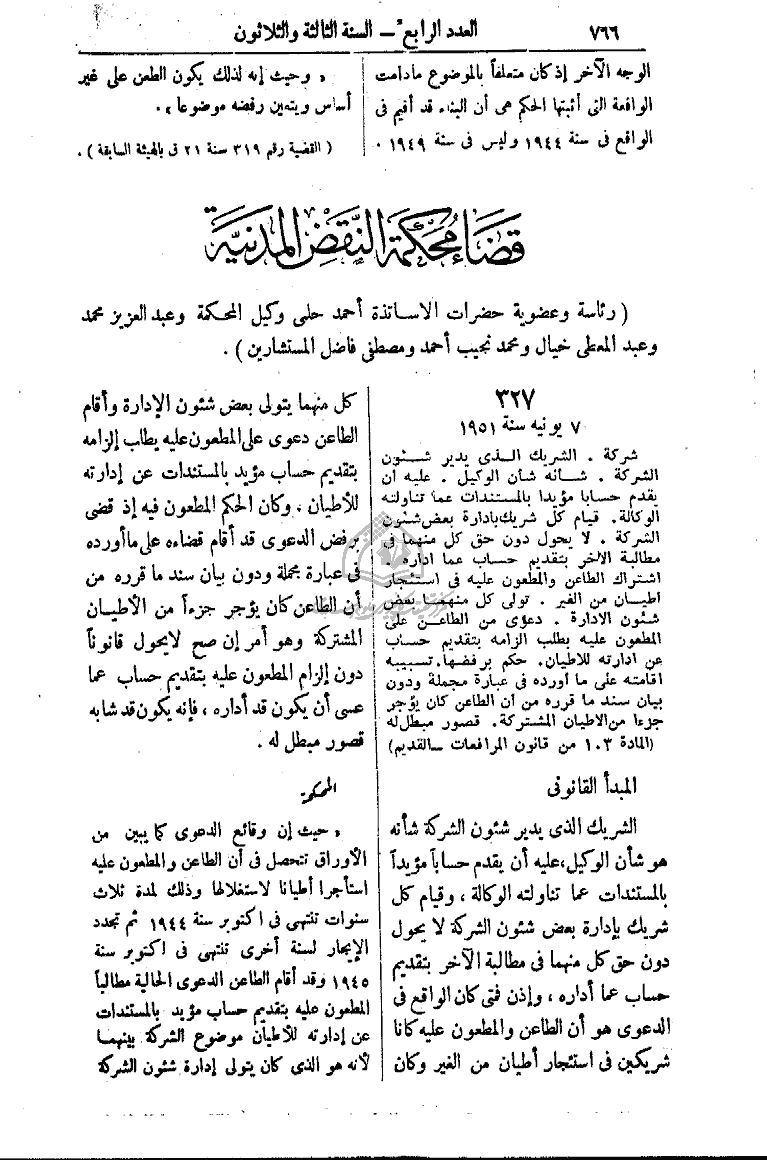 ٧٦٦
العدد الرابع — السنة الثالثة والثلاثون
الوجه الآخر إذ كان متعلقاً بالموضوع مادامت
الواقعة التى أثبتها الحكم هى أن البناء قد أقيم فى
الواقع فى سنة ١٩٤٤ وليس فى سنة ١٩٤٩ .
« وحيث إنه لذلك يكون الطعن على غير
أساس ويتعين رفضه موضوعا » .
( القضية رقم ٣١٩ سنة ٢١ ق بالهيئة السابقة ) .
قضاء محكمة النقض المدنية
( رئاسة وعضوية حضرات الاساتذة أحمد حلمى وكيل المحكمة وعبد العزيز محمد
وعبد المعطى خيال ومحمد نجيب أحمد ومصطفى فاضل المستشارين ) .
٣٢٧
٧ يونيه سنة ١٩٥١
شركة . الشريك الذى يدير شئون
الشركة . شأنه شأن الوكيل . عليه أن
يقدم حسابا مؤيدا بالمستندات عما تناولته
الوكالة . قيام كل شريك بادارة بعض شئون
الشركة . لا يحول دون حق كل منهما فى
مطالبة الآخر بتقديم حساب عما اداره .
اشتراك الطاعن والمطعون عليه فى استئجار
اطيان من الغير . تولى كل منهما بعض
شئون الادارة . دعوى من الطاعن على
المطعون عليه بطلب الزامه بتقديم حساب
عن ادارته للاطيان . حكم برفضها . تسبيبه
اقامته على ما أورده فى عبارة مجملة ودون
بيان سند ما قرره من ان الطاعن كان يؤجر
جزءا من الاطيان المشتركة . قصور مبطل له
(المادة ١٠٣ من قانون المرافعات ــ القديم)
المبدأ القانونى
الشريك الذى يدير شئون الشركة شأنه
هو شأن الوكيل، عليه أن يقدم حساباً مؤيداً
بالمستندات عما تناولته الوكالة ، وقيام كل
شريك بإدارة بعض شئون الشركة لا يحول
دون حق كل منهما فى مطالبة الآخر بتقديم
حساب عما أداره ، وإذن فمتى كان الواقع فى
الدعوى هو أن الطاعن والمطعون عليه كانا
شريكين فى استئجار أطيان من الغير وكان
كل منهما يتولى بعض شئون الإدارة وأقام
الطاعن دعوى على المطعون عليه يطلب إلزامه
بتقديم حساب مؤيد بالمستندات عن إدارته
للأطيان ، وكان الحكم المطعون فيه إذ قضى
برفض الدعوى قد أقام قضاءه على ما أورده
فى عبارة مجملة ودون بيان سند ما قرره من
أن الطاعن كان يؤجر جزءاً من الأطيان
المشتركة وهو أمر إن صح لايحول قانوناً
دون إلزام المطعون عليه بتقديم حساب عما
عسى أن يكون قد أداره ، فإنه يكون قد شابه
قصور مبطل له .
المحكمة
« حيث إن وقائع الدعوى كما يبين من
الأوراق تتحصل فى أن الطاعن والمطعون عليه
استأجرا أطيانا لاستغلالها وذلك لمدة ثلاث
سنوات تنتهى فى اكتوبر سنة ١٩٤٤ ثم تجدد
الإيجار لسنة أخرى تنتهى فى اكتوبر سنة
١٩٤٥ وقد أقام الطاعن الدعوى الحالية مطالباً
المطعون عليه بتقديم حساب مؤيد بالمستندات
عن إدارته للأطيان موضوع الشركة بينهما
لأنه هو الذى كان يتولى إدارة شئون الشركة